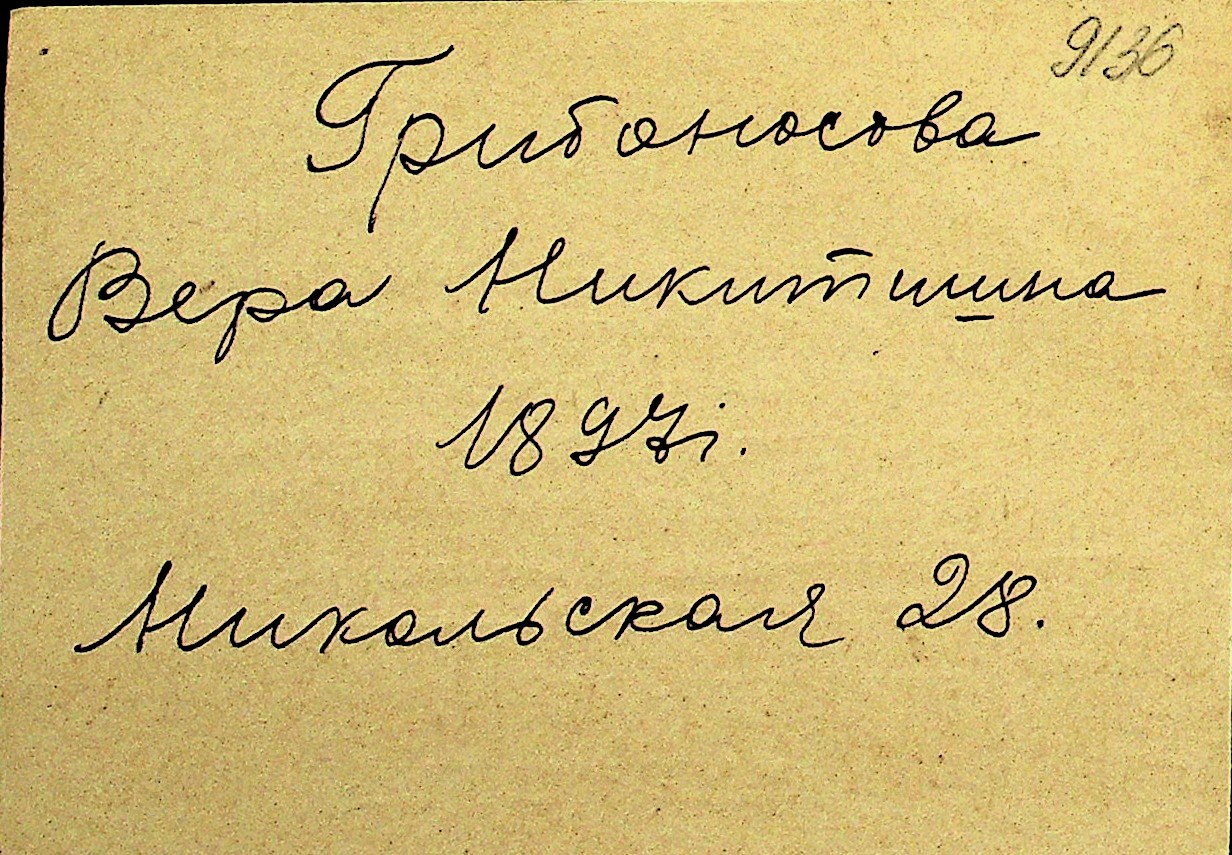 9136
Грибоносова
Вера Никитишна
1897г.
Никольская 28.